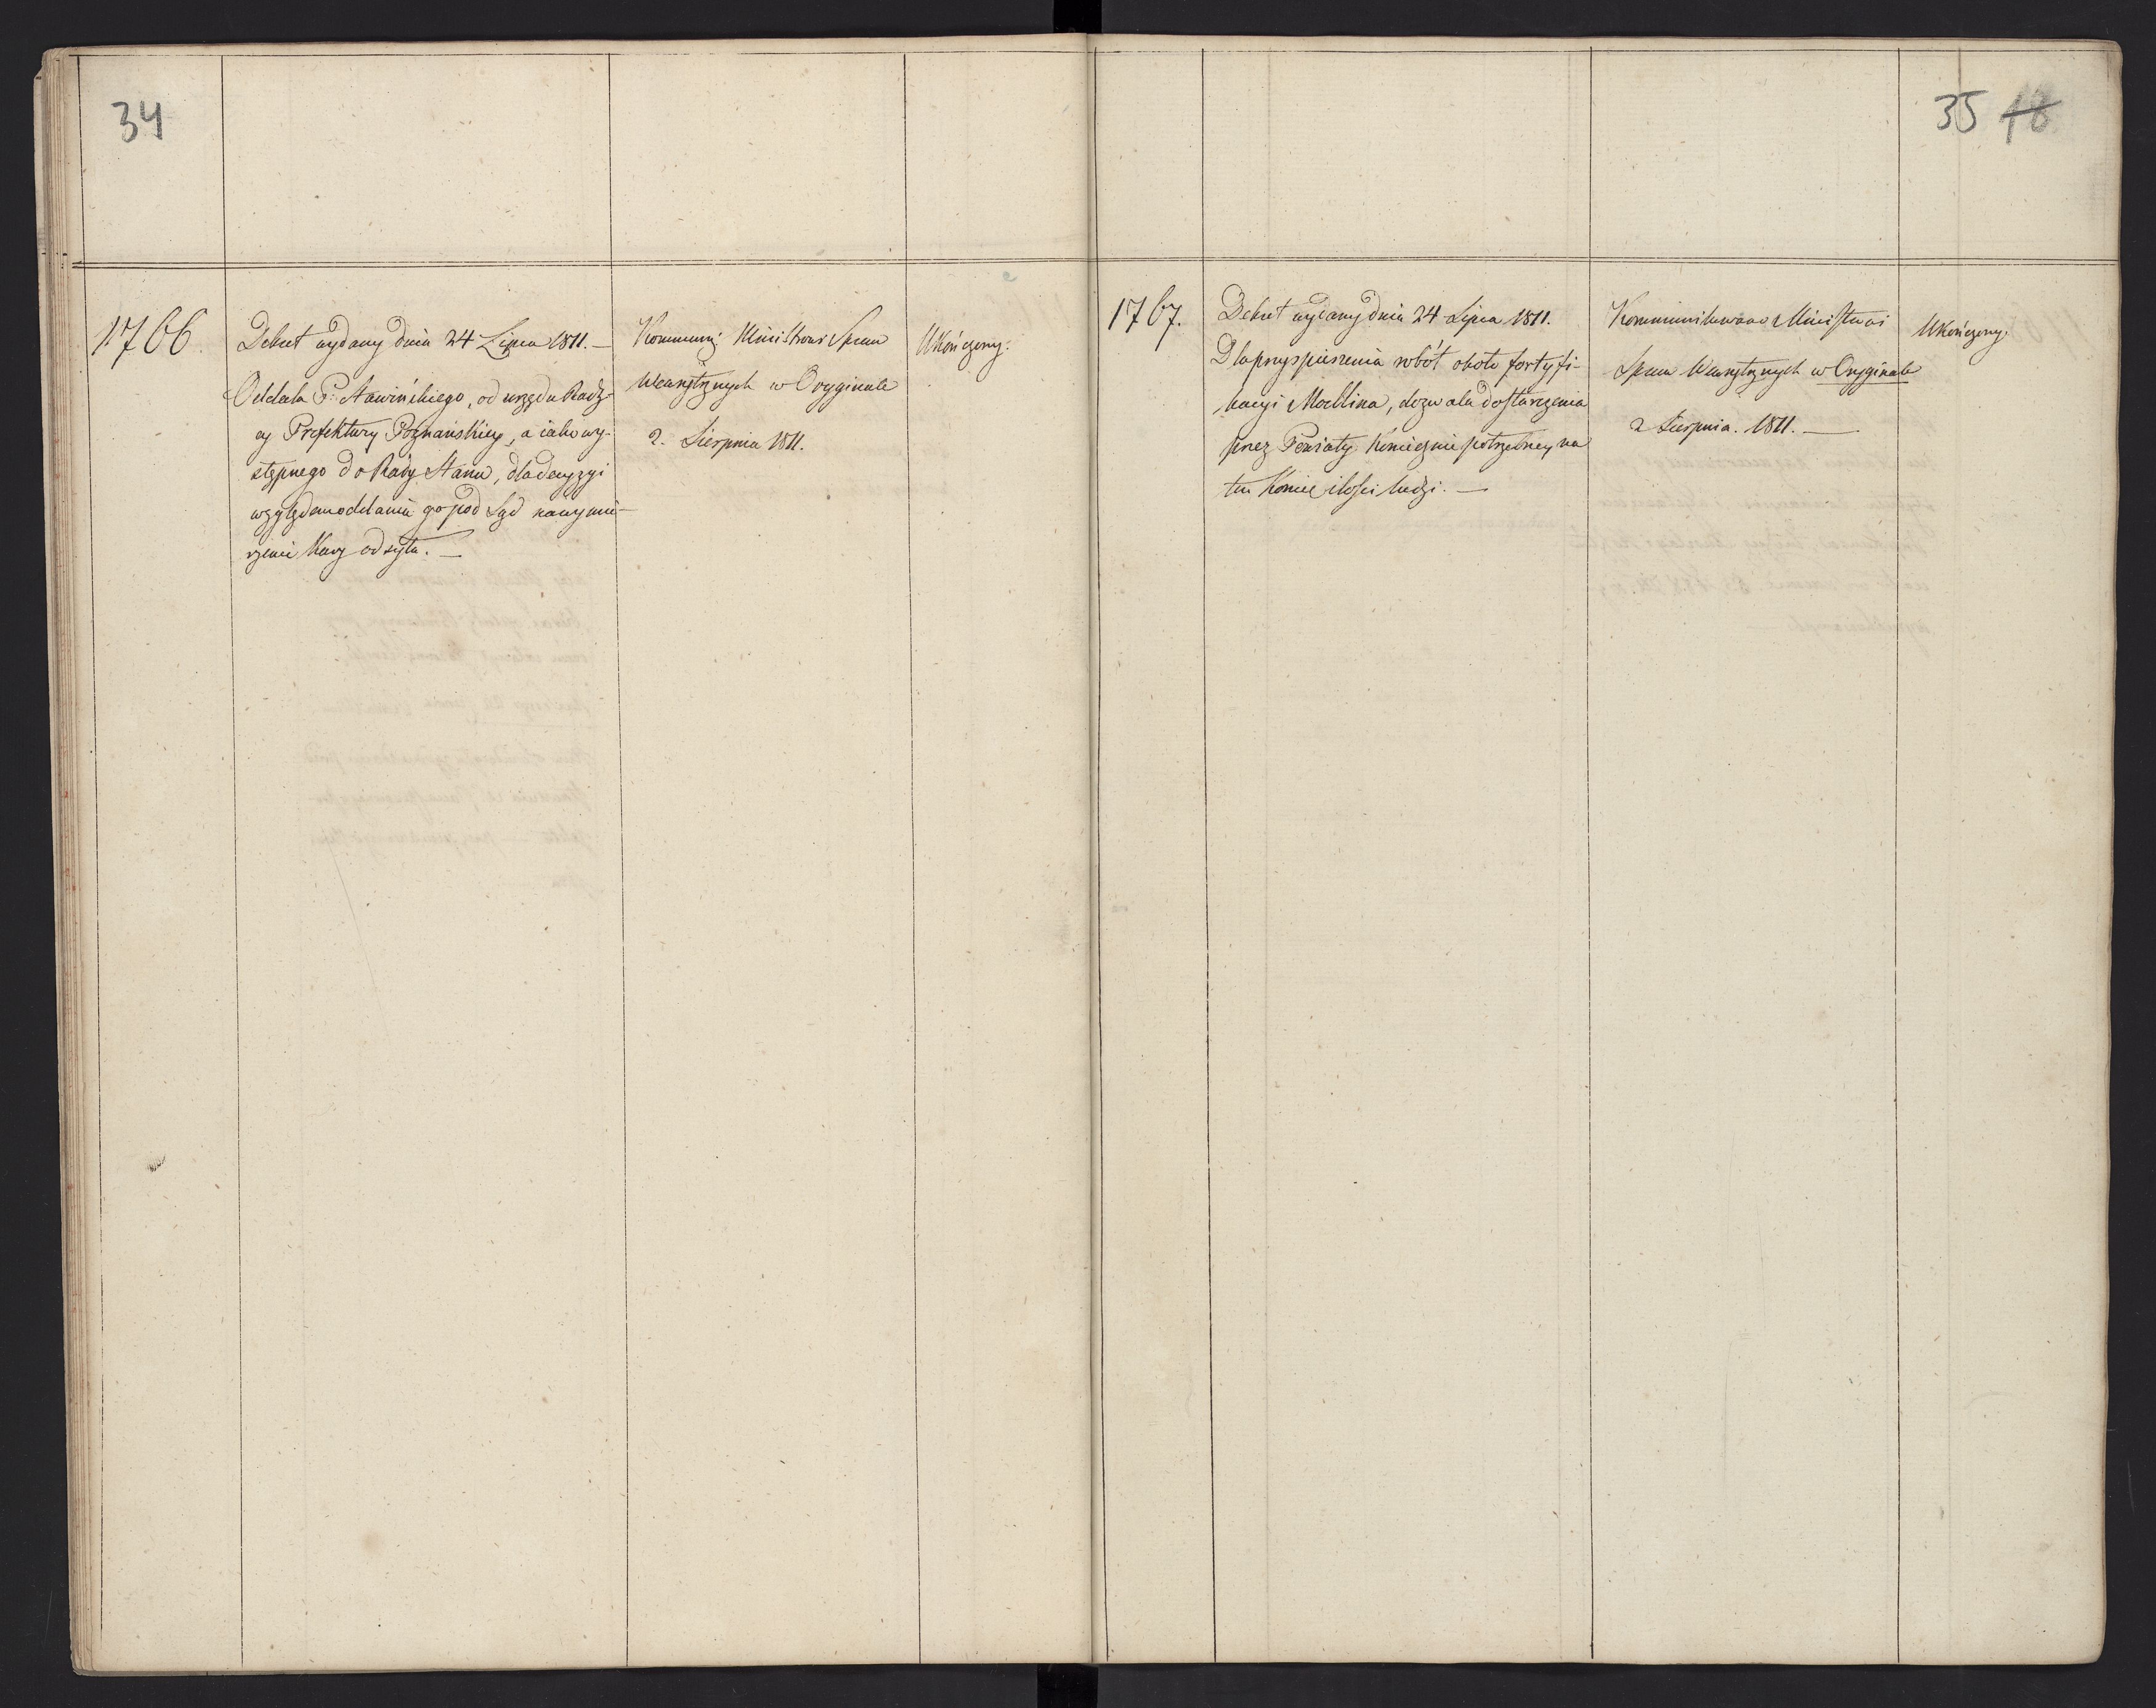 34
1766.
Dekret wydany dnia 24 Lipca 1811. —
Oddala P. Nawińskiego, od urzędu Radz-
cy Prefektury Poznańskiey, a iako wy-
stępnego do Rady Stanu, dla decyzyi
względem oddania go pod Sąd
rzenie kary odsyła. —
Kommuni: Ministrowi Spraw
Wewnętrznych w Oryginale
2. Sierpnia 1811.
Ukończony.
35 18
1767.
Dekret wydany dnia 24 Lipca 1811.
Dla przyspieszenia robót około fortyfi-
kacyi Modlina, dozwala dostarczenia
przez Powiaty koniecznie potrzebney na
ten koniec ilości ludzi. —
Kommunikowano Ministrowi
Spraw Wewnętrznych w Oryginale
2 Sierpnia. 1811. —
Ukończony.